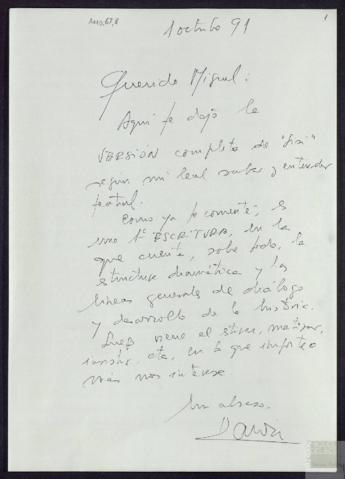 1 octubre 91
Querido Miguel:
Aquí te dejo la
VERSIÓN completa de "Sisi"
según mi leal saber y entender
teatral.
Como ya te comenté, es
una 1ª ESCRITURA, en la
que cuenta, sobre todo, la
estructura dramática y las
líneas generales de diálogo
y desarrollo de la historia.
Luego viene el estirar, matizar,
etc, en lo que importe o
más nos interese.
Un abrazo.